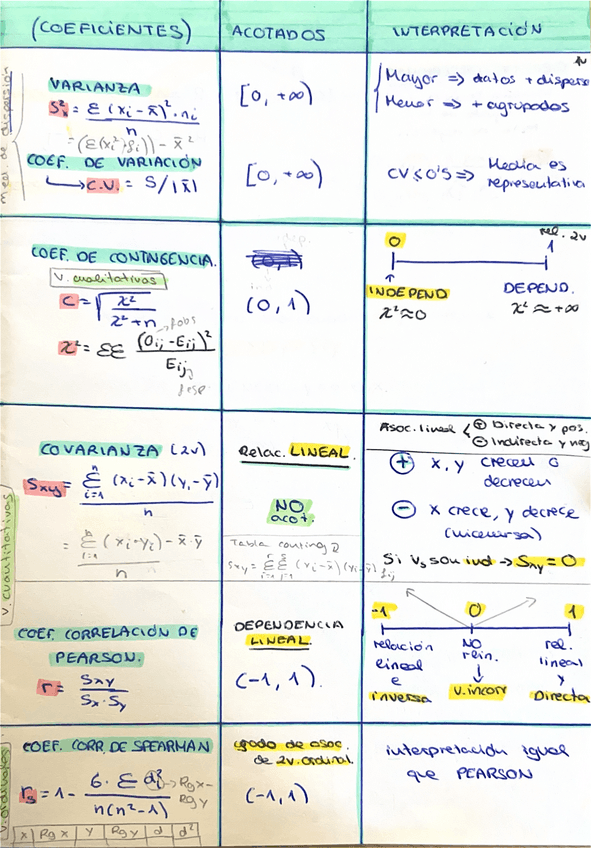 (COEFICIENTES) ACOTADOS INTERPRETACIÓN
med. de dispersión
VARIANZA
S²x = Σ (xi - x̄)² · ni / n
= (Σ(xi²·fi)) - x̄²
[0, +∞)
Mayor => datos + disperso
Menor => + agrupados
COEF. DE VARIACIÓN
C.V. = S/|x̄|
[0, +∞)
CV ≤ 0'5 => Media es
representativa
COEF. DE CONTINGENCIA.
V. cualitativas
C = √ χ² / χ² + n
χ² = ΣΣ (Oij - Eij)² / Eij
(0, 1)
rel. 2v
0 1
INDEPEND DEPEND.
χ² ≈ 0 χ² ≈ +∞
V. cuantitativas
COVARIANZA (2v)
Sxy = Σ (xi - x̄)(yi - ȳ) / n
i=1 n
= Σ (xi · yi) - x̄ · ȳ / n
Relac. LINEAL.
NO
acot.
Tabla conting
Sxy = ΣΣ (xi - x̄)(yi - ȳ)
Asoc. lineal
+ Directa y pos.
- Indirecta y neg
+ x, y crecen o
decrecen
- x crece, y decrece
(viceversa)
Si vs son ind → Sxy = 0
COEF. CORRELACIÓN DE
PEARSON.
r = Sxy / Sx · Sy
DEPENDENCIA
LINEAL
(-1, 1).
-1 0 1
relación NO rel.
lineal rlin. lineal
e ↓ y
inversa v.incorr Directa
V. ordinales
COEF. CORR. DE SPEARMAN
rs = 1 - 6 · Σ di² / n(n² - 1)
→ Rgx -
Rgy
x Rgx y Rgy d d²
grado de asoc.
de 2v. ordinal.
(-1, 1)
interpretación igual
que PEARSON